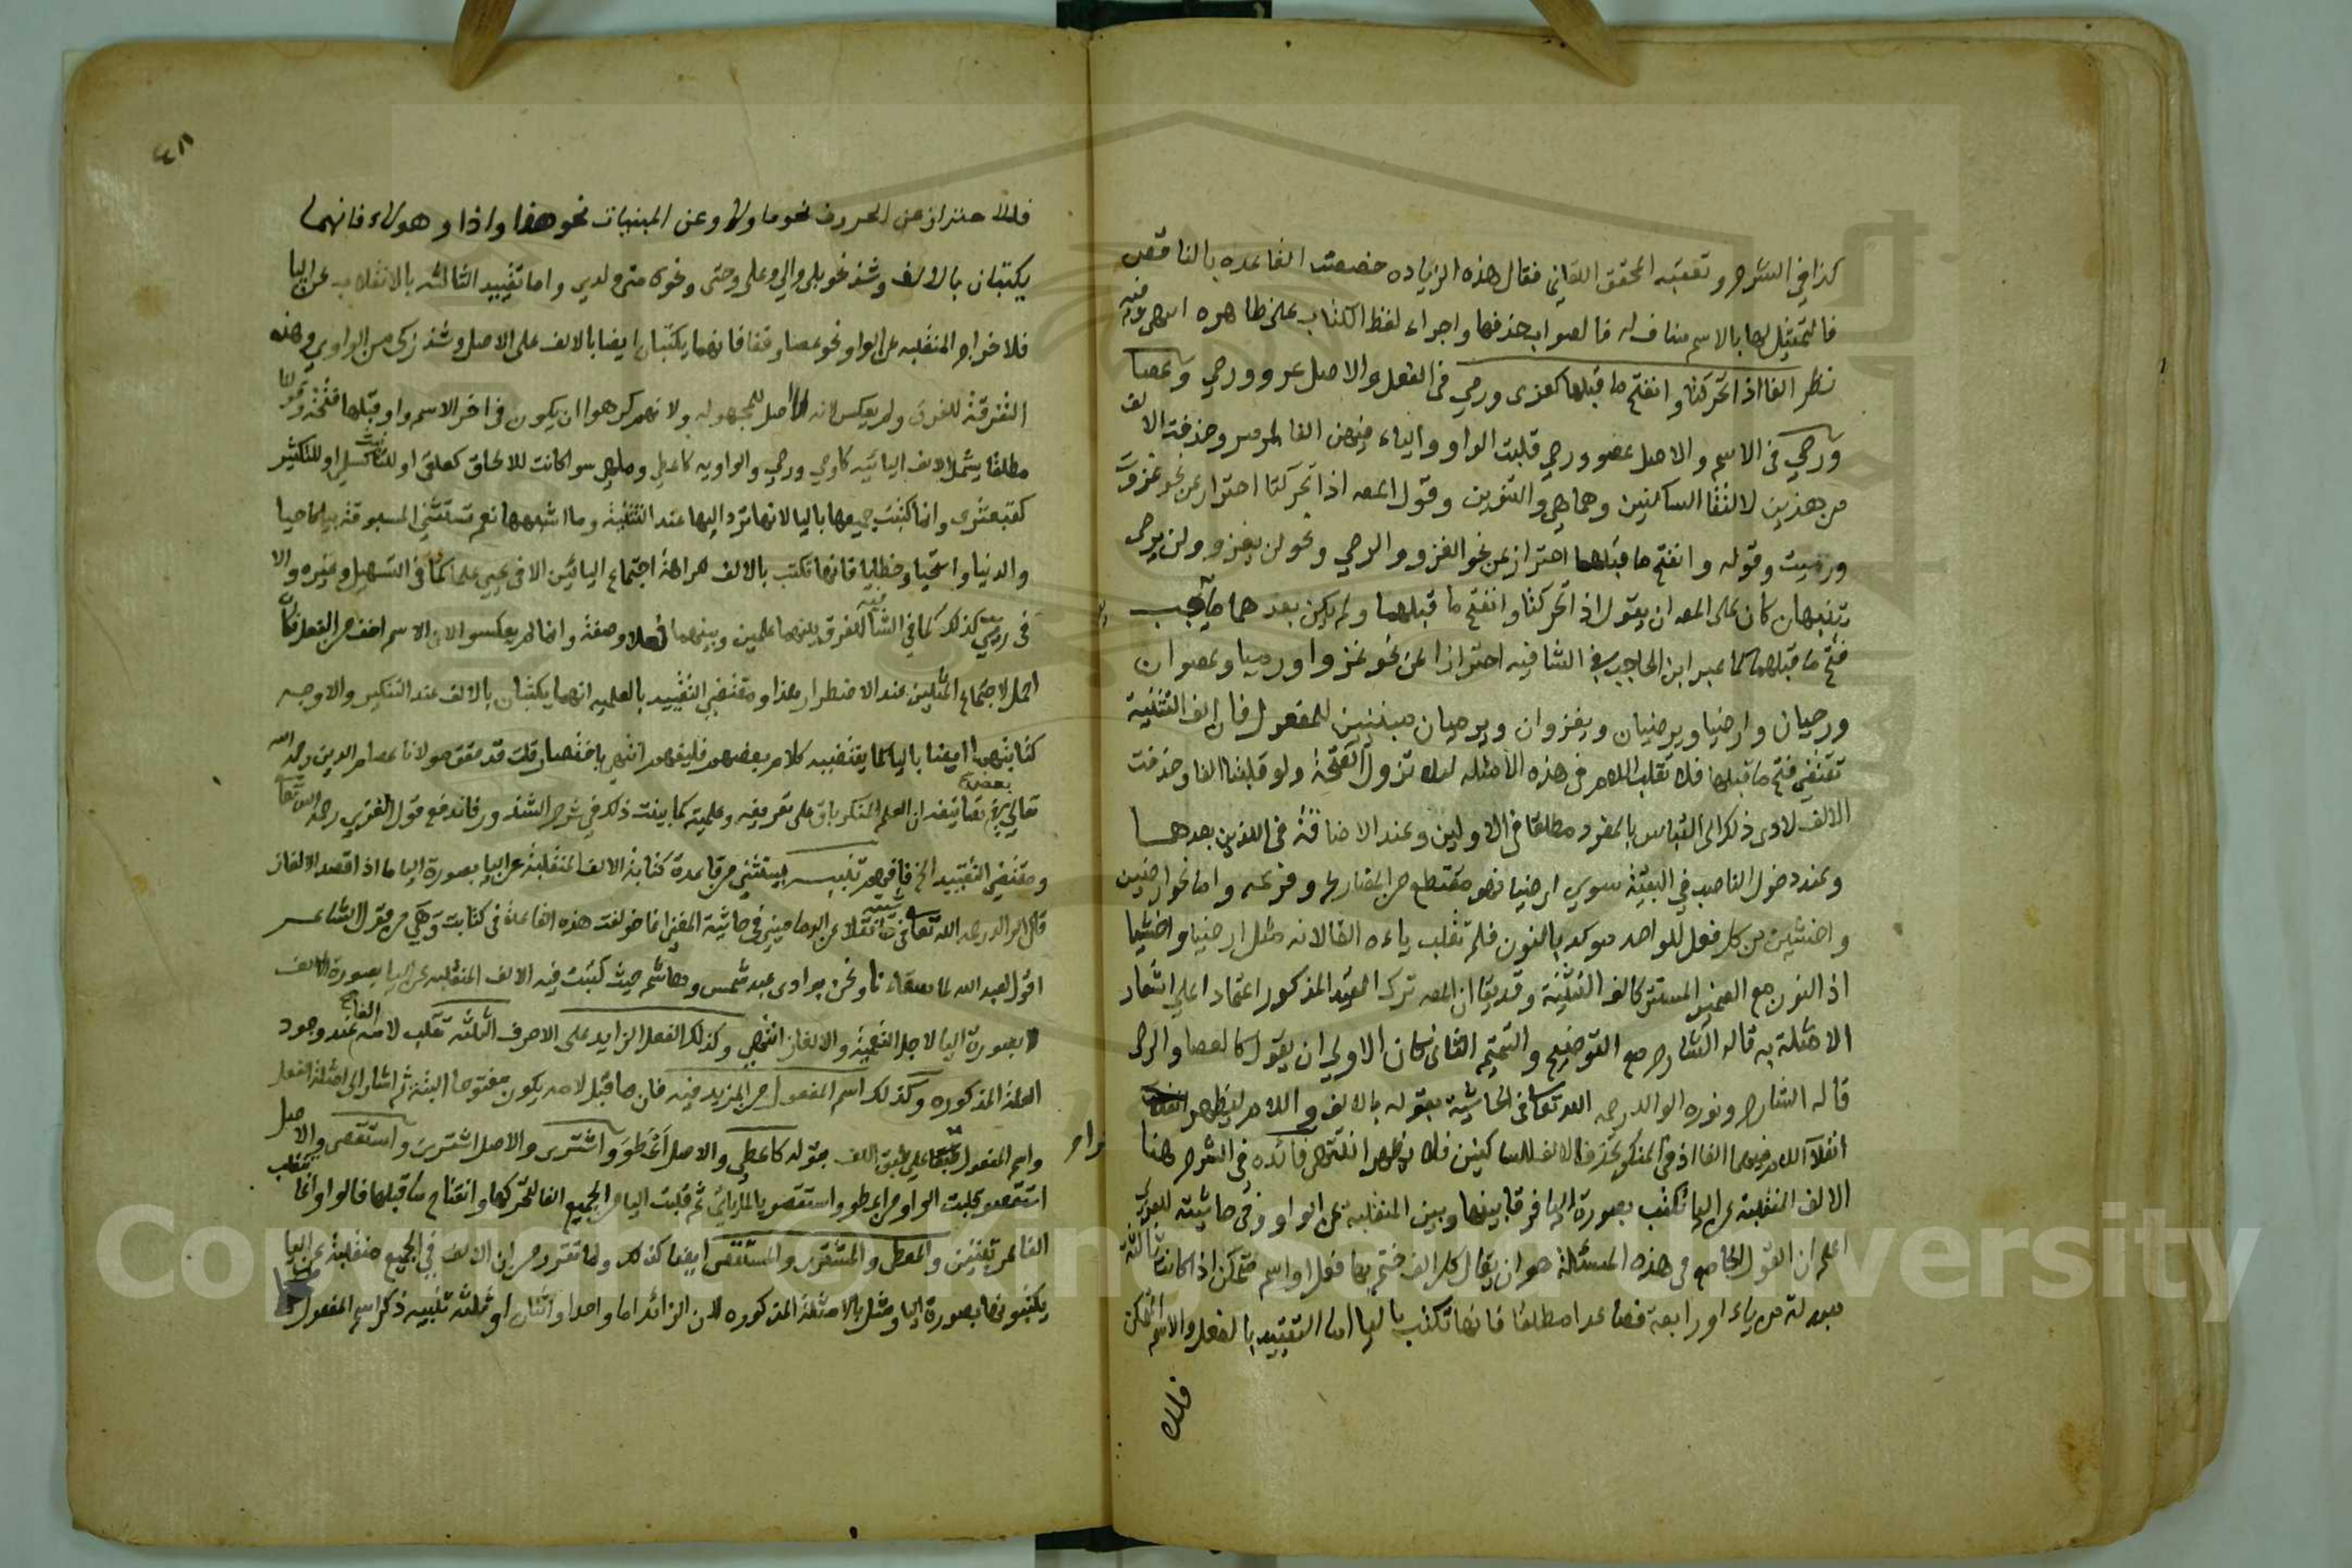 كذا في الشرح وتعقبه المحقق اللقاني فقال هذه الزياده خصصت القاعده بالناقص
فالتمثيل لها بالاسم مناف له فالصواب حذفها واجراء لفظ الكتاب على ظاهره انتهى وفيه
نظر الفا اذا تحركتا وانفتح ما قبلهما كغزى ورمي في الفعل والاصل غزو ورمي وعصا
ورحى في الاسم والاصل عصو ورحي قلبت الواو والياء فيهن الفا لما مر وحذفت الالف
من هذين لالتقا الساكنين وهما هي والتنوين وقول المص اذا تحركتا احتراز عن نحو غزوت
ورميت وقوله وانفتح ما قبلهما احتراز عن نحو الغزو والرمي ونحو لن يغزو ولن يرمى
تنبيهان كان على المص ان يقول اذا تحركتا وانفتح ما قبلهما ولم يكن بعدهما ما يوجب
فتح ما قبلهما كما عبر ابن الحاجب في الشافيه احترازا عن نحو غزوا ورميا وعصوان
ورحيان وارضيا ويرضيان ويغزوان ويرميان مبنيين للمفعول فان الف التثنية
تقتضي فتح ما قبلها فلا تقلب اللام في هذه الامثله لئلا تزول الفتحة ولو قلبتا الفا وحذفت
الالف لادى ذلك الى التباس بالمفرد مطلقا في الاولين وعند الاضافة في اللذين بعدهما
وعند دخول الناصب في البقية سوي ارضيا فهو مقتطع من المضارع وفرعه واما نحو ارضين
واخشين من كل فعل للواحد موكد بالنون فلم تقلب ياءه الفا لانه مثل ارضيا واخشيا
اذ النون مع الضمير المستتر كالف التثنية وقد يقال ان المص ترك القيد المذكور اعتمادا على اشعار
الامثلة به قاله الشارح مع التوضيح والتتميم الثاني كان الاولى ان يقول كالعصا والرحى
قاله الشارح ونوره الوالد رحمه الله تعالى في الحاشية بقوله بالالف واللام ليظهر
انقلاب اللام فيهما الفا اذ في المنكر بحذف الالف للساكنين فلا يظهر انتهى فائده في الشرح هنا
الالف المنقلبة عن اليا تكتب بصورة اليا فرقا بينها وبين المنقلبة عن الواو وفي حاشيته للعزي
اعلم ان القول الجامع في هذه المسئلة هو ان يقال كل الف ختم بها فعل او اسم متمكن اذا كانت ثالثة
مبدلة من ياء او رابعة فصاعدا مطلقا فانها تكتب باليا اما التقييد بالفعل والاسم المتمكن
فللا
٤٨
فللاحتراز عن الحروف نحو ما ولا وعن المبنيات نحو هذا واذا وهولاء فانهما
يكتبان بالالف وشذ نحو بلى والي وعلى وحتى ونحوه متى ولدى واما تقييد الثالثه بالانقلاب عن اليا
فلاخراج المنقلبه عن الواو نحو عصا وقفا فانهما يكتبان ايضا بالالف على الاصل وشذ زكى من الواوي وهذه
التفرقة للفرق ولم يعكس لانه الاصل للمجهوله ولانهم كرهوا ان يكون في اخر الاسم واو قبلها فتحة وقولنا
مطلقا يشمل الالف اليائيه كاوحي ورحي والواويه كاعطي وملهى سوا كانت للالحاق كعلقى او للتانيث كحبلى او للتكثير
كقبعثرى وانما كتبت جميعها باليا لانها ترد اليها عند التثنية وما اشبهها نعم تستثنى المسبوقة بيا كاحيا
والدنيا واستحيا وخطايا فانها تكتب بالالف كراهة اجتماع اليائين الا في يحيي علما كما في التسهيل وغيره والا
في ريى كذلك كما في الشافيه للفرق بينهما علمين وبينهما فعلا وصفة وانما لم يعكسوا لان الاسم اخف من الفعل فكان
احمل لاجتماع المثلين عند الاضطرار هذا ومقتضى التقييد بالعلميه انهما يكتبان بالالف عند التنكير والاوجه
كتابتهما ايضا باليا كما يقتضيه كلام بعضهم فليفهم انتهى باختصار قلت قد حقق مولانا عصام الدين رحمه الله
تعالى في بعض تصانيفه ان العلم المنكر باق على تعريفه وعلميته كما بينت ذلك في شرح الشذور فاندفع قول الغزي رحمه الله تعالى
ومقتضى التقييد الخ فافهم تنبيه يستثني من قاعدة كتابة الالف المنقلبة عن اليا بصورة اليا ما اذا قصد الالغاز
قال الوالد رحمه الله تعالى في حاشيته نقلا عن الدماميني في حاشية المغني انما خولفت هذه القاعدة في كتابت وهي من قول الشاعر
اقول لعبد الله لما سقاءنا ونحن بوادي عبد شمس وهاشم حيث كتبت فيه الالف المنقلبه عن اليا بصورة الالف
لا بصورة اليا لاجل التعمية والالغاز انتهى وكذلك الفعل الزايد على الاحرف الثلثه تقلب لامه الفا عند وجود
العلة المذكوره وكذلك اسم المفعول من المزيد فيه فان ما قبل لامه يكون مفتوحا البتة ثم اشار الى امثلة الفعل
واسم المفعول على طبق اللف بقوله كاعطى والاصل اعطو واشترى والاصل اشتري واستقصى والاصل
استقصو قلبت الواو من اعطو واستقصو يا لما ياتي ثم قلبت اليا من الجميع الفا لتحركها وانفتاح ما قبلها فالواو انما تقلب
الفا لمرتبتين والمعطى والمشترى والمستقصى ايضا كذلك ولما تقرر من ان الالف في الجميع منقلبة عن اليا
يكتبونها بصورة اليا ومثل بالامثلة المذكوره لان الزائد اما واحد او اثنان او ثلثه تنبيه ذكر اسم المفعول